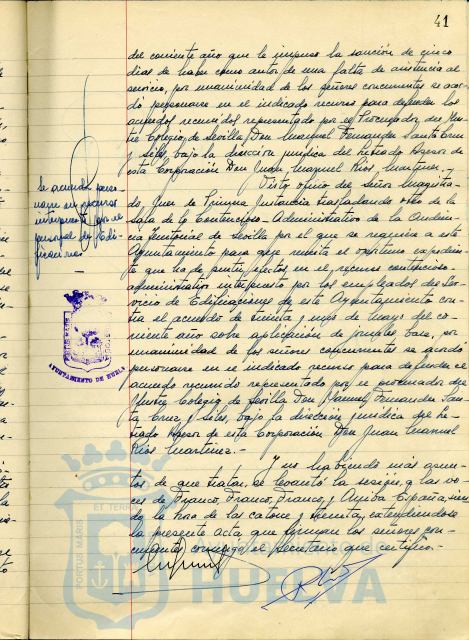 41
del corriente año que le impuso la sanción de cinco
dias de haber como autor de una falta de asistencia al
servicio, por unanimidad de los señores concurrentes se acor-
dó personarse en el indicado recurso para defender los
acuerdos recurridos representado por el Procurador del Ilus-
tre Colegio de Sevilla, Don Manuel Fernandez Santa Cruz
y Siles, bajo la dirección juridica del Letrado Asesor de
esta Corporación Don Juan Manuel Rios Martinez.-
Visto oficio del señor Magistra-
do, Juez de Primera Instancia trasladando otro de la
Sala de lo Contencioso-Administrativo de la Audiencia
Territorial de Sevilla por el que se requiere a este
Ayuntamiento para que remita el oportuno expedien-
te que ha de surtir efectos en el recurso contencioso-
administrativo interpuesto por los empleados del Ser-
vicio de Edificaciones de este Ayuntamiento con-
tra el acuerdo de treinta y uno de mayo del co-
rriente año sobre aplicación de jornales base, por
unanimidad de los señores concurrentes se acordó
personarse en el indicado recurso para defender el
acuerdo recurrido representado por el procurador del
Ilustre Colegio de Sevilla Don Manuel Fernandez San-
ta Cruz y Siles, bajo la dirección juridica del Le-
trado Asesor de esta Corporación Don Juan Manuel
Rios Martinez.-
Y no habiendo más asun-
tos de que tratar, se levantó la sesión, a las vo-
ces de Franco, Franco, Franco, y Arriba España, sien-
do la hora de las catorce y treinta, extendiendose
la presente acta que firman los señores con-
currentes conmigo el Secretario que certifico.-
Se acuerda perso-
narse en recurso
interpuesto por el
personal de Edi-
ficaciones
AYUNTAMIENTO DE HUELVA
PORTUS MARIS
ET TERRAE
HUELVA